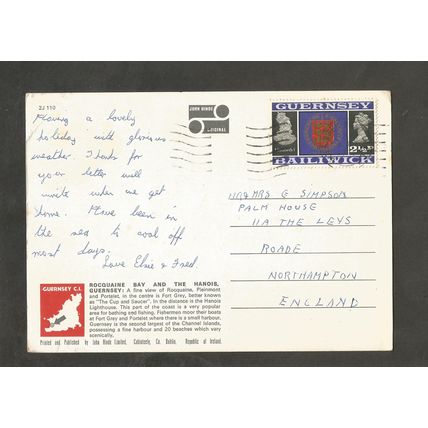 2J 110
Having a lovely
holiday with glorious
weather. Thanks for
your letter will
write when we get
home. Have been in
the sea to cool off
most days.
Love Elsie & Fred
JOHN HINDE
ORIGINAL
GUERNSEY
2½P
BAILIWICK
MR & MRS G SIMPSON
PALM HOUSE
11A THE LEYS
ROADE
NORTHAMPTON
ENGLAND
GUERNSEY C.I.
ROCQUAINE BAY AND THE HANOIS,
GUERNSEY: A fine view of Rocquaine, Pleinmont
and Portelet, in the centre is Fort Grey, better known
as "The Cup and Saucer". In the distance is the Hanois
Lighthouse. This part of the coast is a very popular
area for bathing and fishing. Fishermen moor their boats
at Fort Grey and Portelet where there is a small harbour.
Guernsey is the second largest of the Channel Islands,
possessing a fine harbour and 20 beaches which vary
scenically.
Printed and Published by John Hinde Limited, Cabinteely, Co. Dublin, Republic of Ireland.